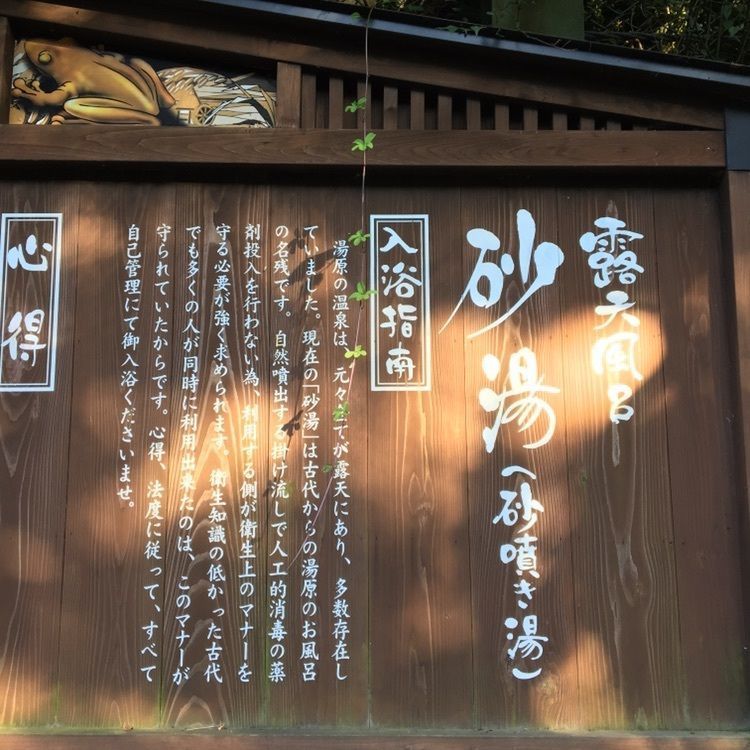 露天風呂
砂湯(砂噴き湯)
入浴指南
湯原の温泉は、元々全てが露天にあり、多数存在し
ていました。現在の「砂湯」は古代からの湯原のお風呂
の名残です。自然噴出する掛け流しで人工的消毒の薬
剤投入を行わない為、利用する側が衛生上のマナーを
守る必要が強く求められます。衛生知識の低かった古代
でも多くの人が同時に利用出来たのは、このマナーが
守られていたからです。心得、法度に従って、すべて
自己管理にて御入浴くださいませ。
心得